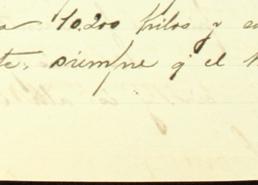 10.200 kilos y
te, siempre q' el